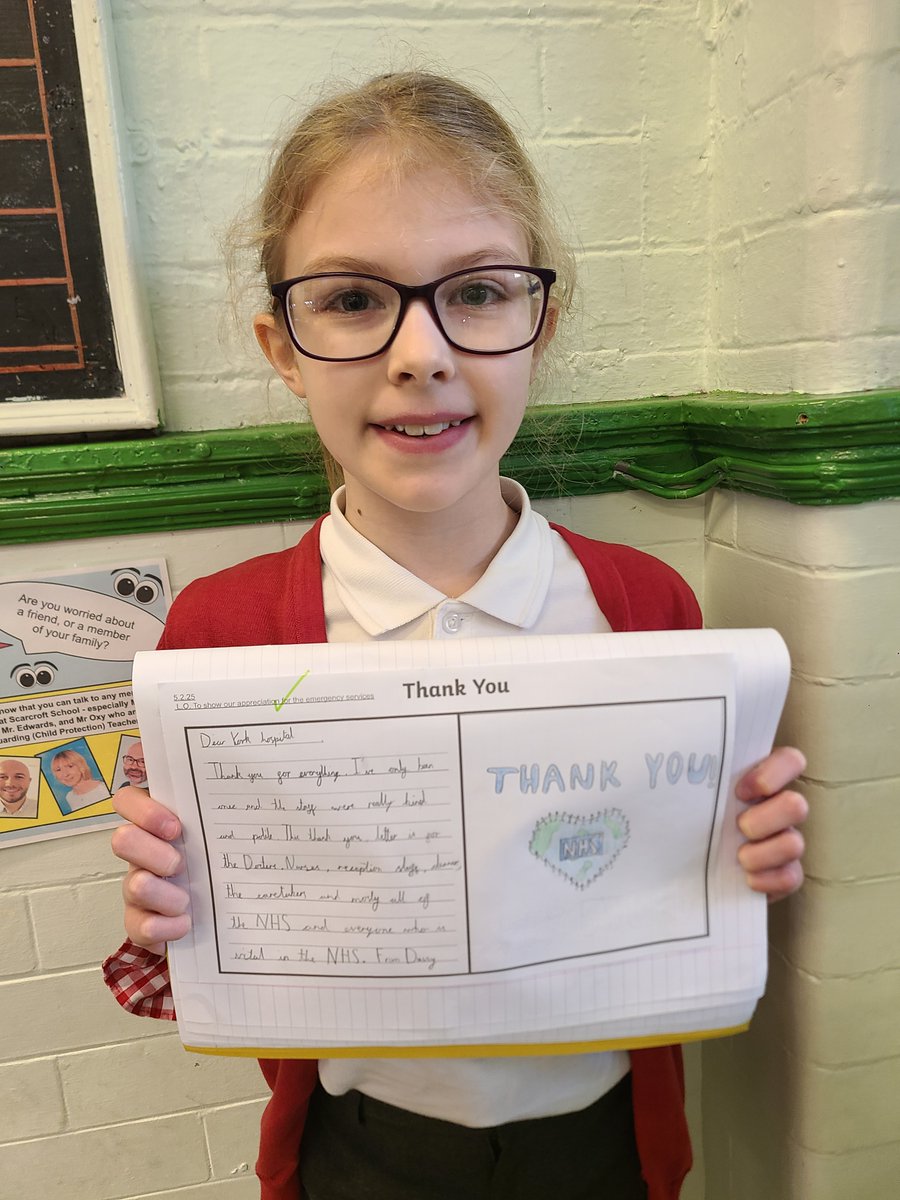 Are you worried about
a friend, or a member
of your family?
now that you can talk to any me
at Scarcroft School - especially M
Mr. Edwards, and Mr Oxy who ar
uarding (Child Protection) Teache
5.2.25
L.O. To show our appreciation for the emergency services
Thank You
Dear York hospital
Thank you for everything. I've only ben
once and the staff were really kind
and polite This thank you letter is for
the Doctors, Nurses, reception staff,
the caretakers and mostly all of
the NHS and everyone who is
vital in the NHS. From Daisy
THANK YOU!
NHS